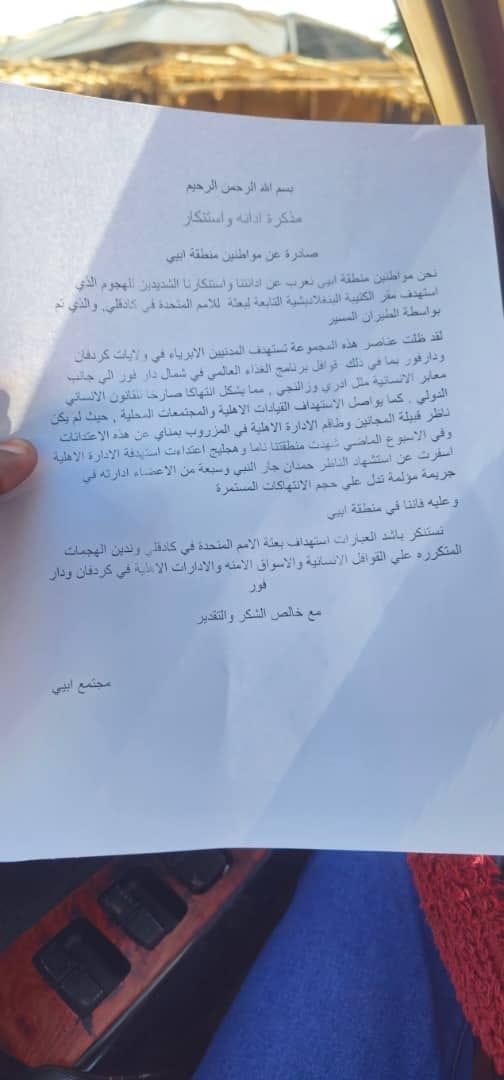 بسم الله الرحمن الرحيم
مذكرة ادانه واستنكار
صادرة عن مواطنين منطقة ابيي
نحن مواطنين منطقة ابيي نعرب عن ادانتنا واستنكارنا الشديدين للهجوم الذي
استهدف مقر الكتيبة البنغلاديشية التابعة لبعثة للامم المتحدة في كادقلي, والذي تم
بواسطة الطيران المسير
لقد ظلت عناصر هذه المجموعة تستهدف المدنيين الابرياء في ولايات كردفان
ودارفور بما في ذلك قوافل برنامج الغذاء العالمي في شمال دار فور الي جانب
معابر الانسانية مثل ادري وزالنجي , مما يشكل انتهاكا صارخا للقانون الانساني
الدولي . كما يواصل الاستهداف القيادات الاهلية والمجتمعات المحلية , حيث لم يكن
ناظر قبيلة المجانين وطاقم الادارة الاهلية في المزروب بمناي عن هذه الاعتداءات
وفي الاسبوع الماضي شهدت منطقتنا ناما وهجليج اعتداءت استهدفة الادارة الاهلية
اسفرت عن استشهاد الناظر حمدان جار النبي وسبعة من الاعضاء ادارته في
جريمة مؤلمة تدل علي حجم الانتهاكات المستمرة
وعليه فاننا في منطقة ابيي
نستنكر باشد العبارات استهداف بعثة الامم المتحدة في كادقلي وندين الهجمات
المتكرره علي القوافل الانسانية والاسواق الامنه والادارات الاهلية في كردفان ودار
فور
مع خالص الشكر والتقدير
مجتمع ابيي